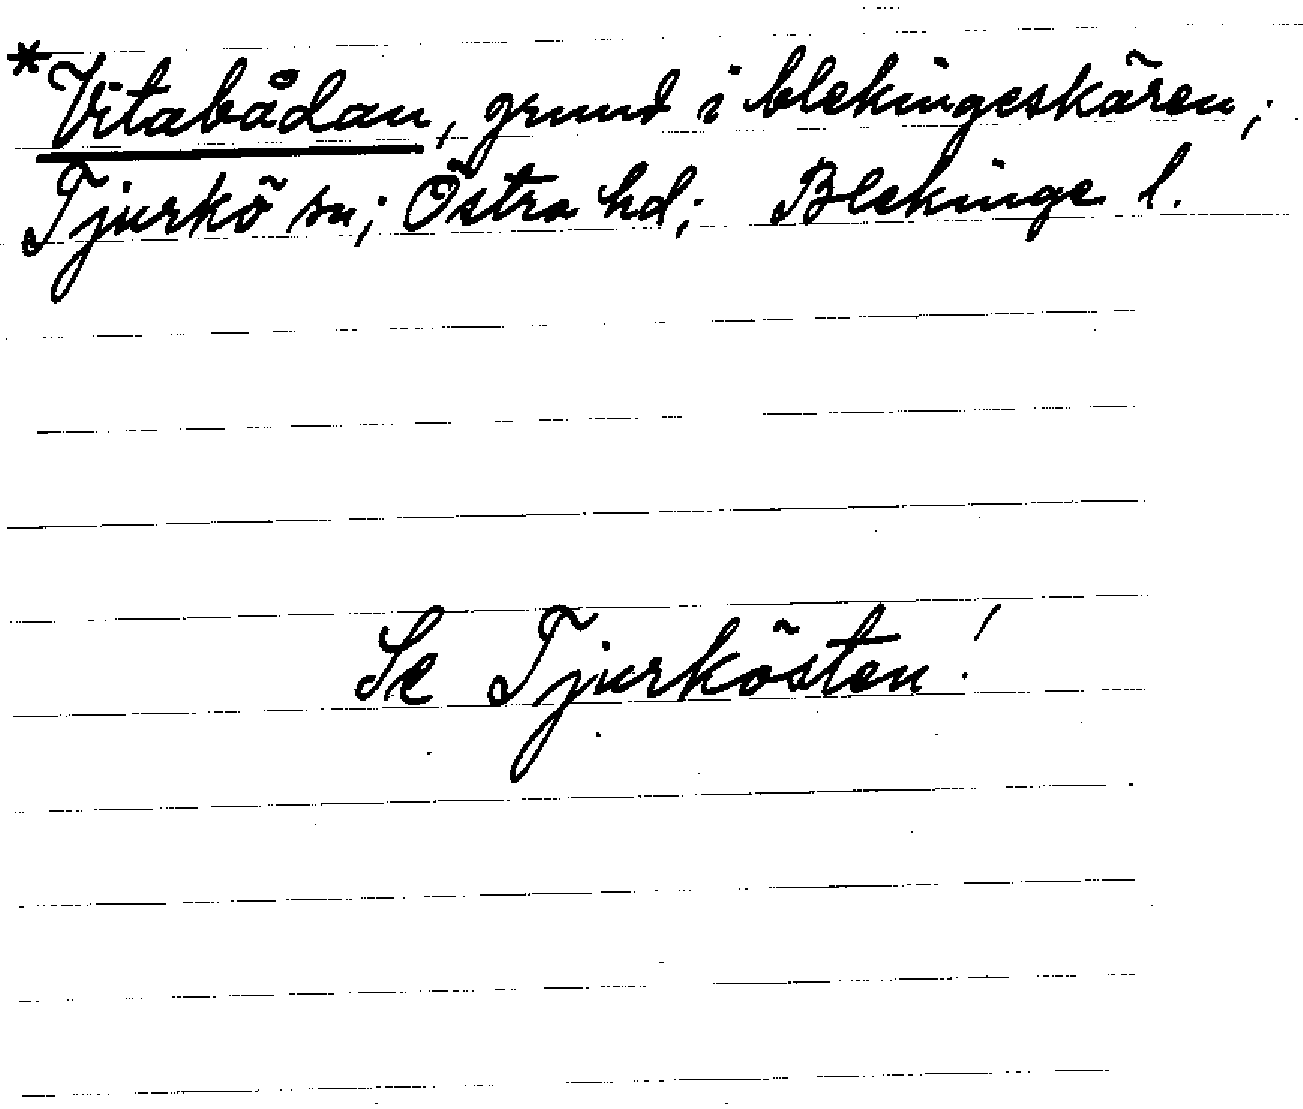 *Vitabådan, grund i blekingeskären;
Tjurkö sn; Östra hd; Blekinge l.
Se Tjurkösten!